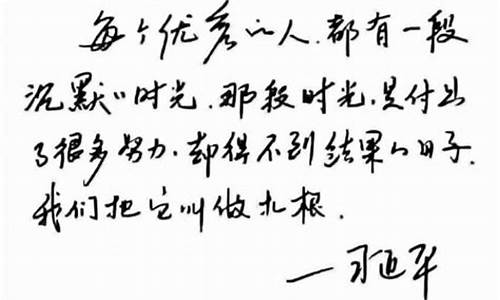 每个优秀的人,都有一段
沉默的时光.那段时光,是付出
了很多努力,却得不到结果的日子.
我们把它叫做扎根.
—习近平